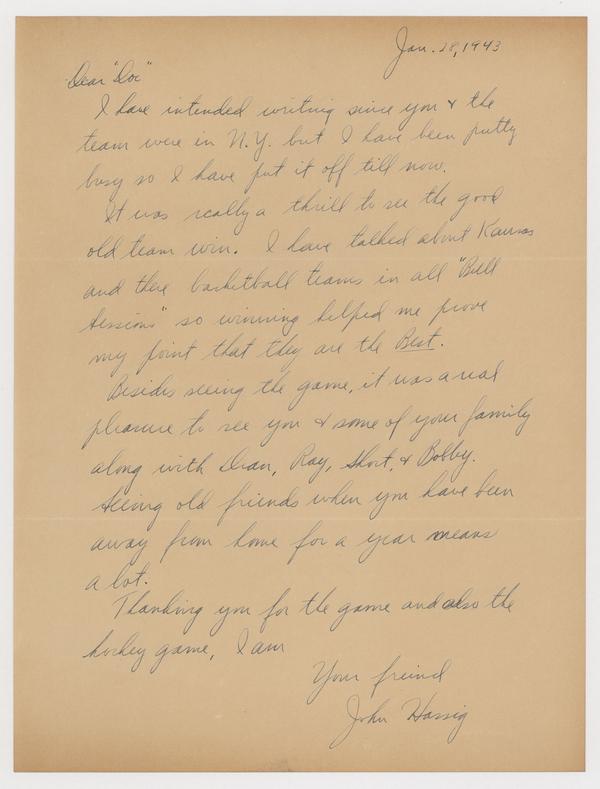 Jan. 28, 1943
Dear "Doc"
I have intended writing since you & the
team were in N.Y. but I have been pretty
busy so I have put it off till now.
It was really a thrill to see the good
old team win. I have talked about Kansas
and there basketball teams in all "Bull
Sessions" so winning helped me prove
my point that they are the Best.
Besides seeing the game, it was a real
pleasure to see you & some of your family
along with Dean, Ray, Short, & Bobby.
Seeing old friends when you have been
away from home for a year means
a lot.
Thanking you for the game and also the
hockey game, I am
Your freind
John Hassig